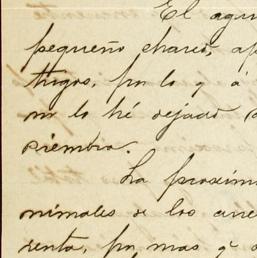 El agu
pequeño charco, ap
trigos, por lo q á
no lo hé dejado
siembra.
La proxim
nimales de los ane
renta, por mas q